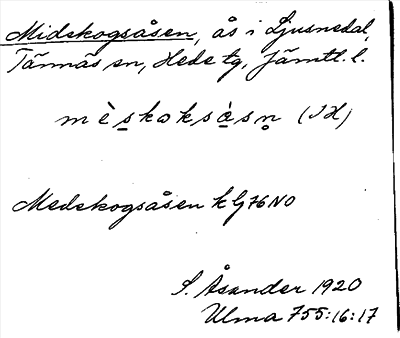 Midskogsåsen, ås i Ljusnedal,
Tännäs sn, Hede tg, Jämtl. l.
mèskoksàsn̥ (IH)
Medskogsåsen k Gj 76 NO
S. Åsander 1920
Ulma 755:16:17